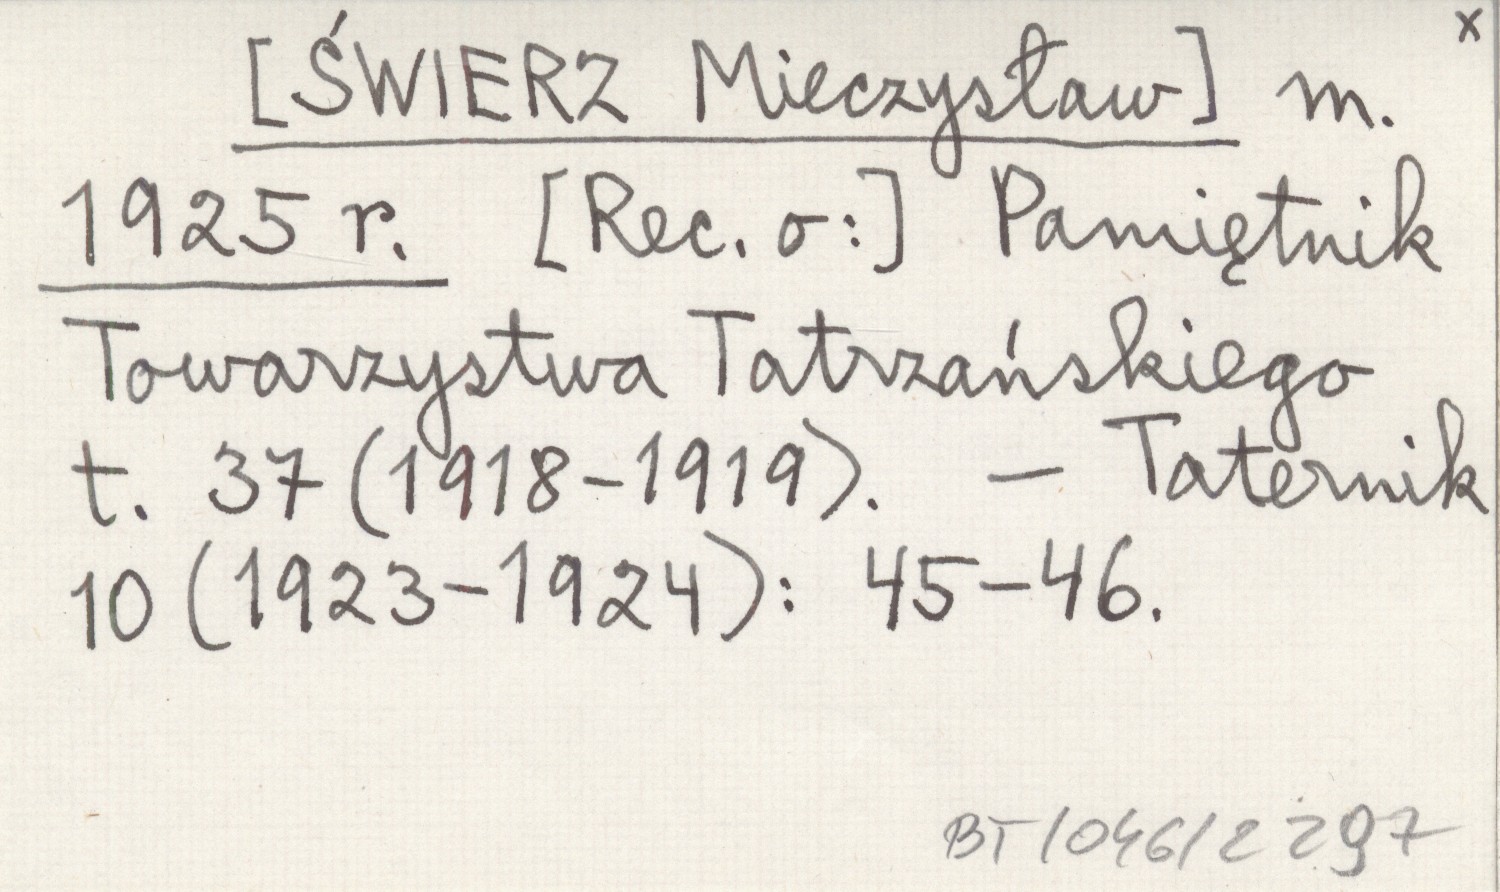 x
[ŚWIERZ Mieczysław] m.
1925 r. [Rec. o:] Pamiętnik
Towarzystwa Tatrzańskiego
t. 37 (1918-1919). - Taternik
10 (1923-1924): 45-46.
BT/046/2297